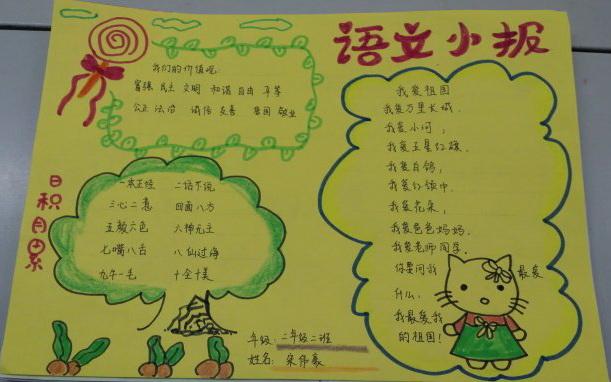 语文小报
我们的价值观:
富强 民主 文明 和谐 自由 平等
公正 法治 诚信 友善 爱国 敬业
日积月累
一本正经 二话不说
三心二意 四面八方
五颜六色 六神无主
七嘴八舌 八仙过海
九牛一毛 十全十美
我爱祖国
我爱万里长城,
我爱小河,
我爱五星红旗,
我爱白鸽,
我爱红领巾,
我爱花朵,
我爱爸爸妈妈,
我爱老师同学,
你要问我最爱
什么,
我最爱我
的祖国!
年级:二年级二班
姓名: